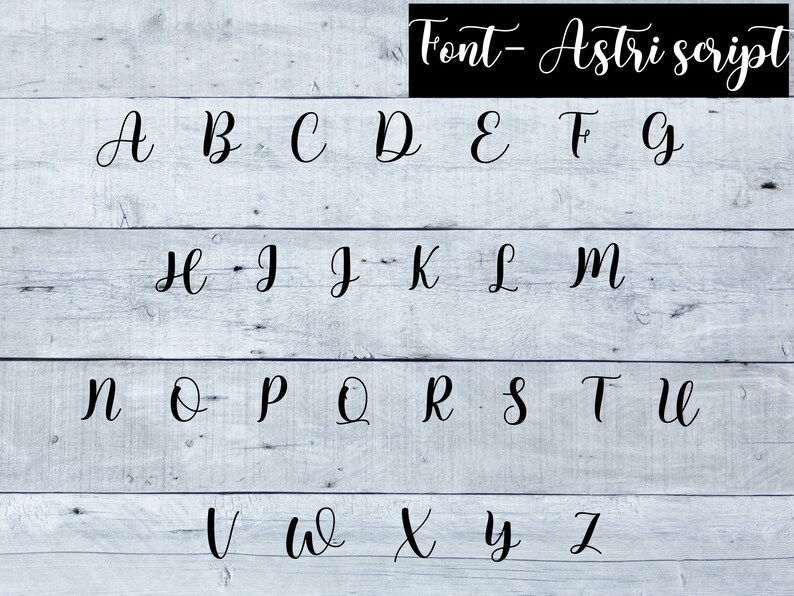 Font- Astri script
A B C D E F G
H I J K L M
N O P Q R S T U
V W X Y Z